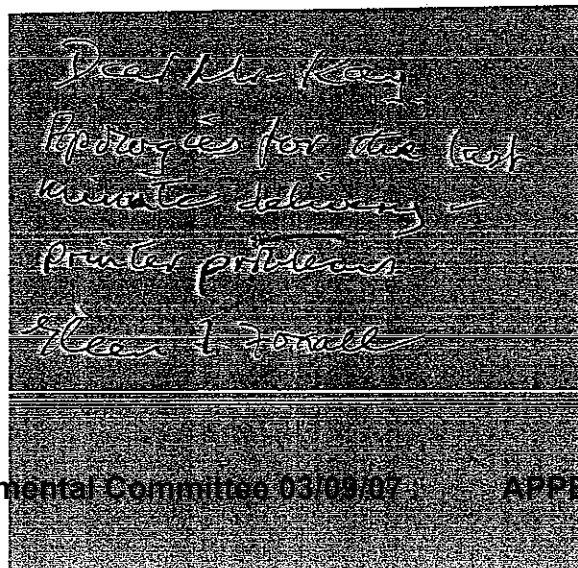 Dear Mr Kay
Apologies for the last
minute delivery –
printer problems
mental Committee 03/09/07 APPE